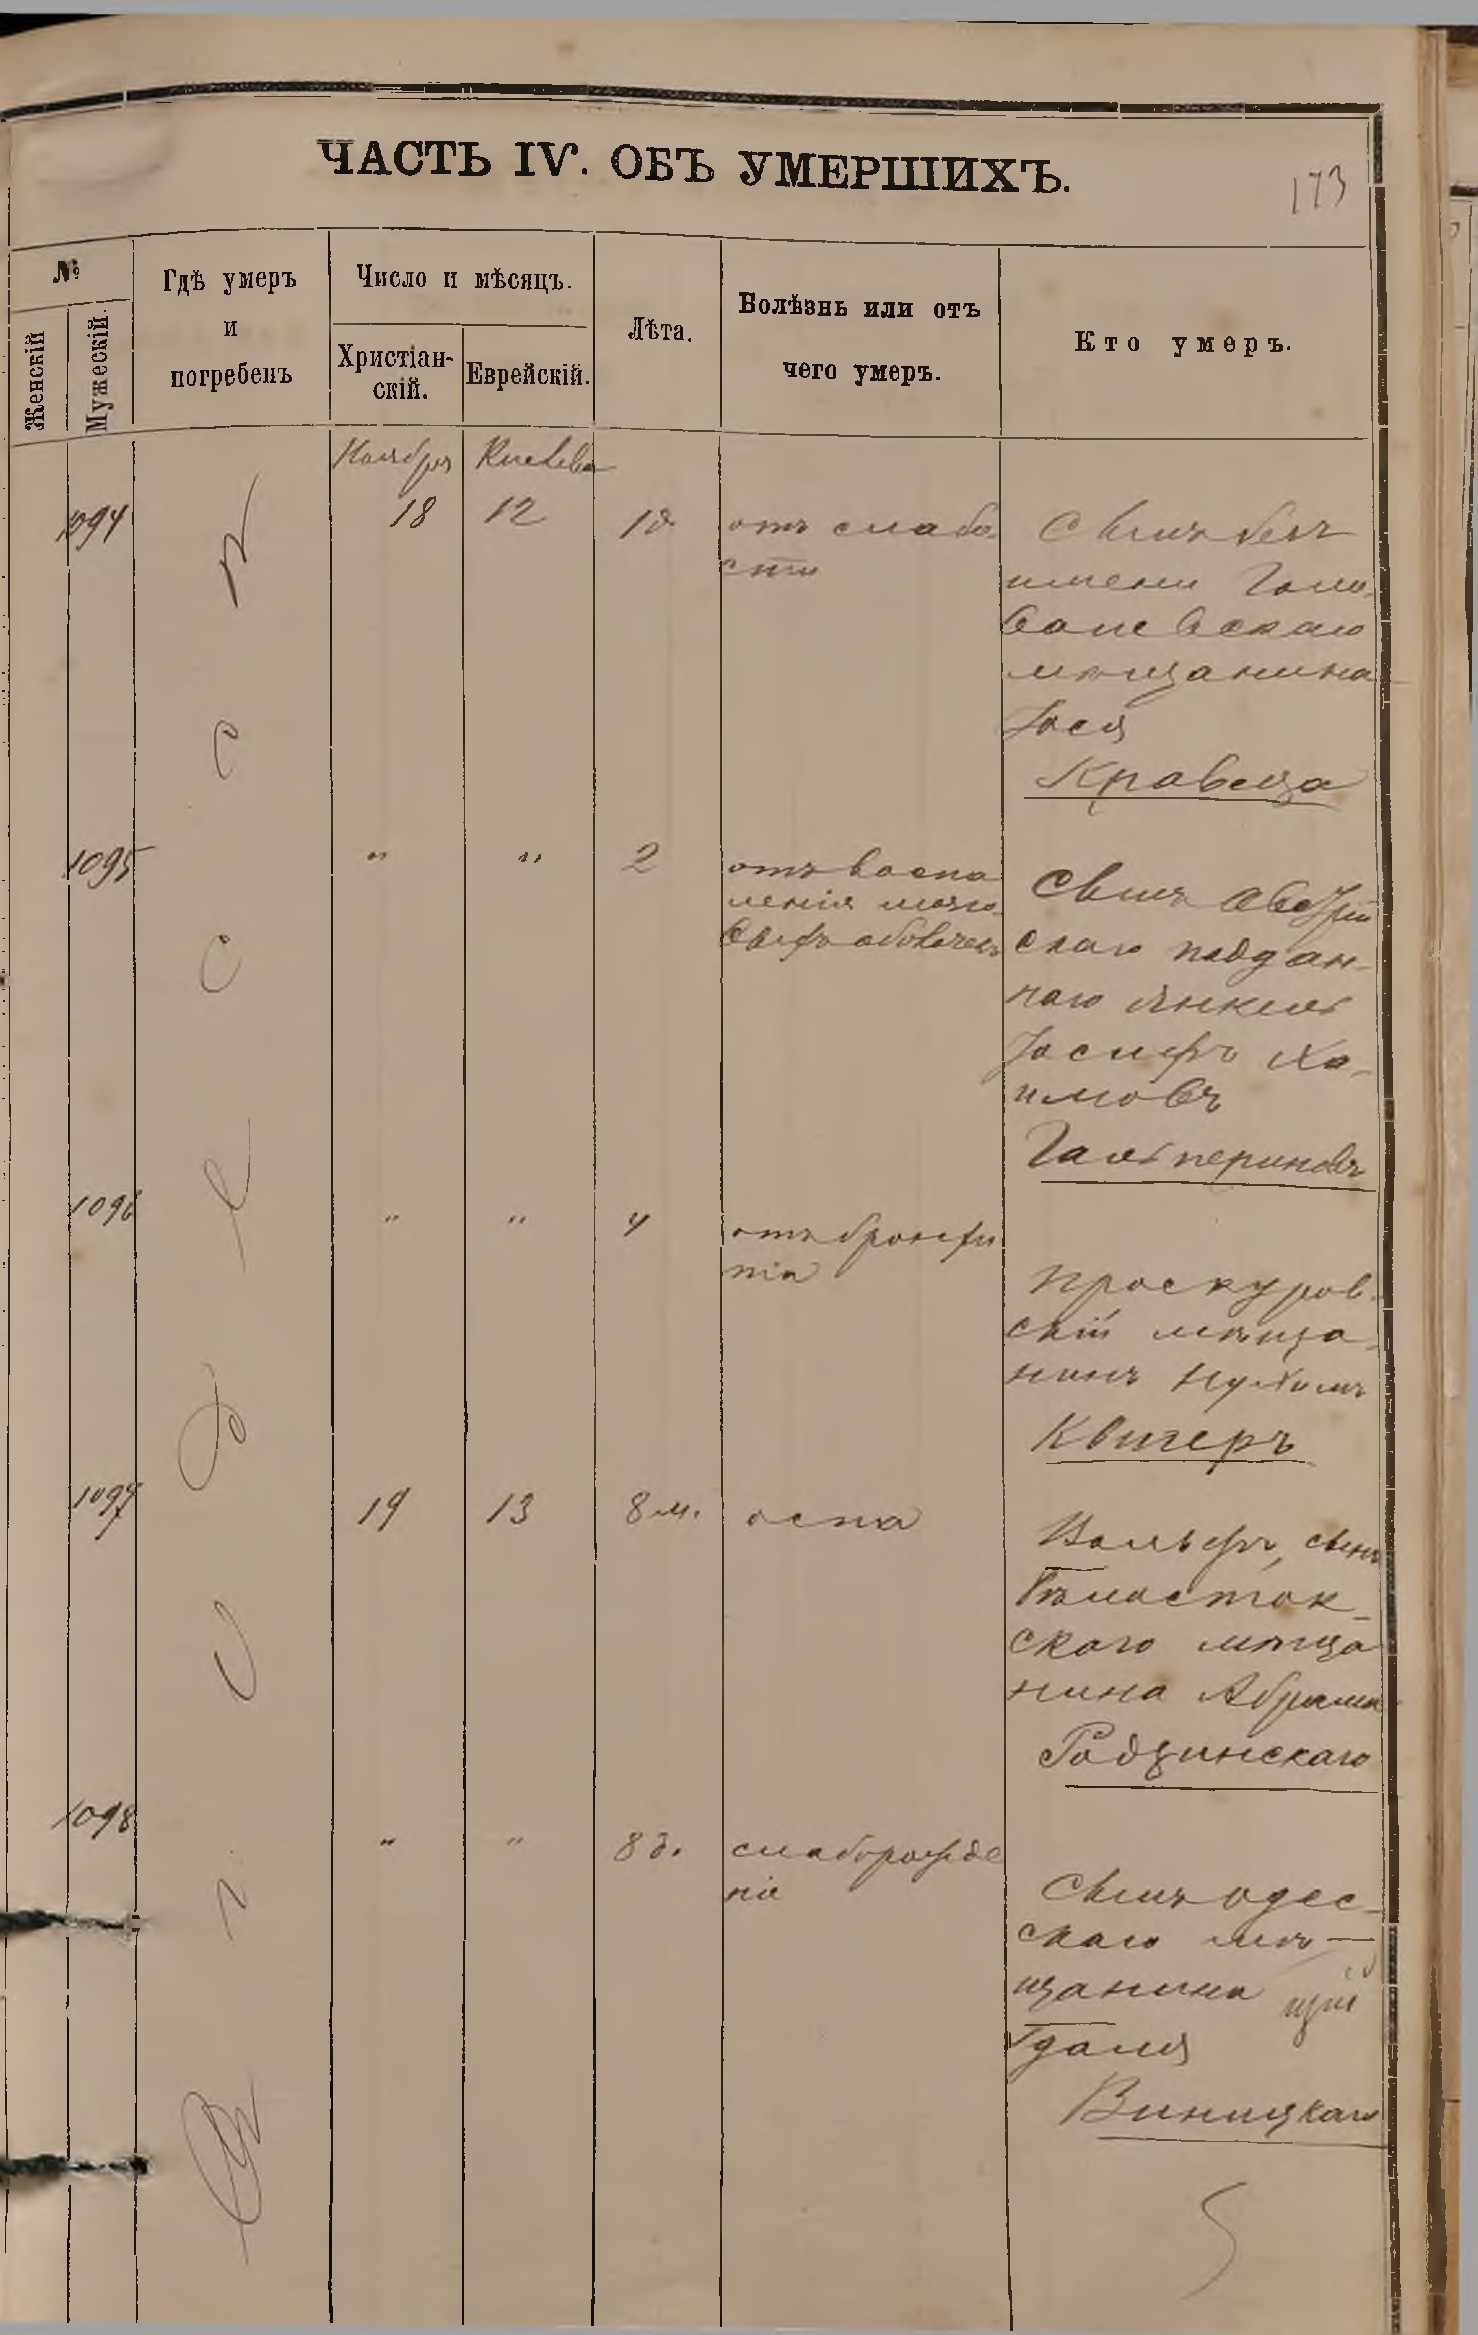 ЧАСТЬ IV. ОБЪ УМЕРШИХЪ.
173
№
Женскій
Мужескій.
Гдѣ умеръ
и
погребенъ
Число и мѣсяцъ.
Христіан-
скій.
Еврейскій.
Лѣта.
Болѣзнь или отъ
чего умеръ.
Кто умеръ.
Ноября Кислева
1094 18 12 1д. отъ слабо-
сти
Сынъ безъ
имени
мѣщанина
Іося
Кравеца
1095 " " 2 отъ воспа
ленія мозго-
выхъ оболочекъ
Сынъ Австрій
скаго поддан-
наго Янкель
Іосифъ Ха-
имовъ
Гальперинъ
1096 " " 4 отъ бронхи
та
Проскуров-
скій мѣща-
нинъ Нухимъ
Квигеръ
1097 19 13 8 м. оспа
Вольфъ, сынъ
Бѣлосток-
скаго мѣща
нина Абрама
Родзинскаго
1098 " " 8 д. слаборожде
ніе
Сынъ одес-
скаго мѣ-
щанина
Гдаля
Виницкаго